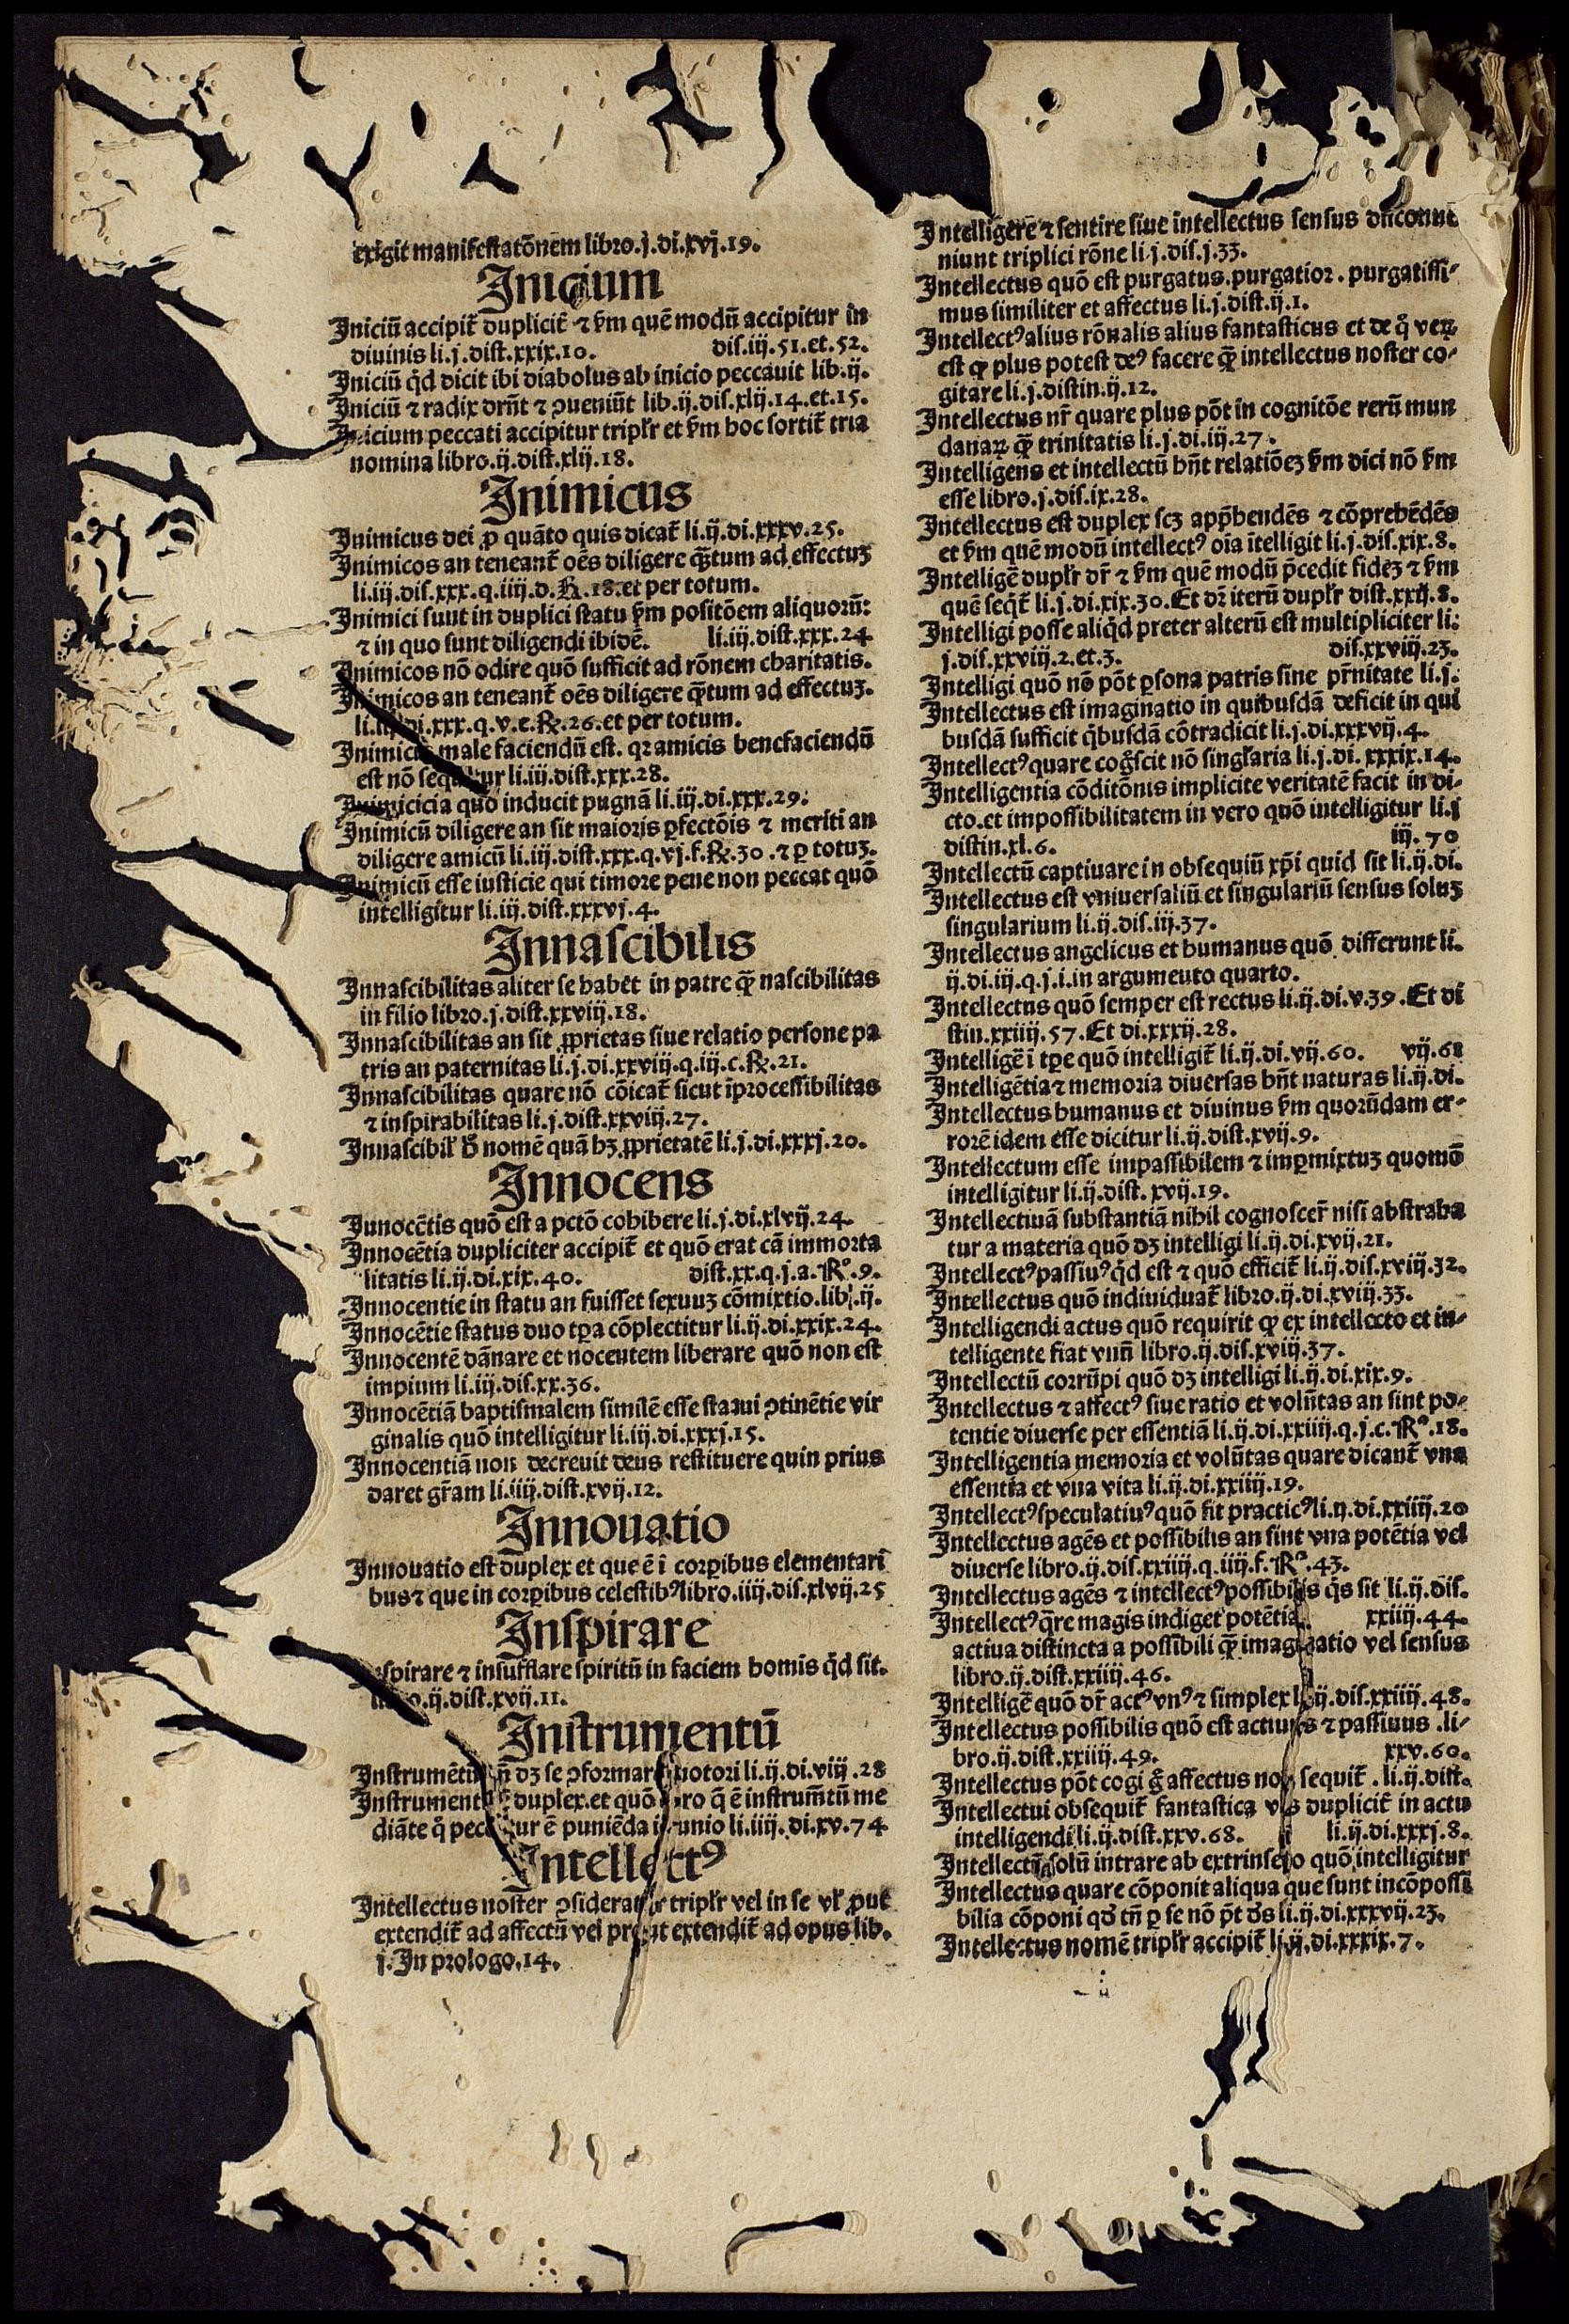 exigit manifestatōnem libro.j.di.xvj.19.
Inicium
Iniciū accipit̄ duplicit̄ ⁊ ẜm quē modū accipitur in
diuinis li.j.dist.xxix.10. dis.iij.51.et.52.
Iniciū qd̄ dicit ibi diabolus ab inicio peccauit lib.ij.
Iniciū ⁊ radix drn̄t ⁊ ꝯueniūt lib.ij.dis.xlij.14.et.15.
Inicium peccati accipitur tripľr et ẜm hoc sortit̄ tria
nomina libro.ij.dist.xlij.18.
Inimicus
Inimicus dei ꝓ quāto quis dicat̄ li.ij.di.xxxv.25.
Inimicos an teneant̄ oēs diligere q̄ꝫtum ad effectuꝫ
li.iij.dis.xxx.q.iiij.d.R.18.et per totum.
Inimici sunt in duplici statu ẜm positōem aliquorū:
⁊ in quo sunt diligendi ibidē. li.iij.dist.xxx.24
Inimicos nō odire quō sufficit ad rōnem charitatis.
Inimicos an teneant̄ oēs diligere q̄ꝫtum ad effectuꝫ.
li.iij.di.xxx.q.v.e.℞.26.et per totum.
Inimicis male faciendū est. qꝛ amicis benefaciendū
est nō sequitur li.iii.dist.xxx.28.
Inimicicia quō inducit pugnā li.iij.di.xxx.29.
Inimicū diligere an sit maioris ꝑfectōis ⁊ meriti an
diligere amicū li.iij.dist.xxx.q.vj.f.℞.30.⁊ ꝑ totuꝫ.
Inimicū esse iusticie qui timore pene non peccat quō
intelligitur li.iij.dist.xxxvj.4.
Innascibilis
Innascibilitas aliter se habet in patre q̄ꝫ nascibilitas
in filio libro.j.dist.xxviij.18.
Innascibilitas an sit ꝓprietas siue relatio persone pa
tris an paternitas li.j.di.xxviij.q.iij.c.℞.21.
Innascibilitas quare nō cōicat̄ sicut īprocessibilitas
⁊ inspirabilitas li.j.dist.xxviij.27.
Innascibiľ hoc nomē quā hꝫ ꝓprietatē li.j.di.xxxj.20.
Innocens
Innocētis quō est a pctō cohibere li.j.di.xlvij.24.
Innocētia dupliciter accipit̄ et quō erat cā immorta
litatis li.ij.di.xix.40. dist.xx.q.j.a.Rº.9.
Innocentie in statu an fuisset sexuuꝫ cōmixtio.lib.ij.
Innocētie status duo tꝑa cōplectitur li.ij.di.xxix.24.
Innocentē dānare et nocentem liberare quō non est
impium li.iii.dis.xx.36.
Innocētiā baptismalem similē esse statui ꝯtinētie vir
ginalis quō intelligitur li.iij.di.xxxj.15.
Innocentiā non decreuit deus restituere quin prius
daret gr̄am li.iiij.dist.xvij.12.
Innouatio
Innouatio est duplex et que ē ī corꝑibus elementari
bus ⁊ que in corꝑibus celestibꝰ libro.iiij.dis.xlvij.25
Inspirare
Inspirare ⁊ insufflare spiritū in faciem homīs qd̄ sit.
libro.ij.dist.xvij.11.
Instrumentū
Instrumētū n̄ dꝫ se ꝯformare motori li.ij.di.viij.28
Instrumentū duplex.et quō ro q̄ ē instrum̄tū me
diāte q̄ pec ur ē puniēda unio li.iiij.di.xv.74
Intellectꝰ
Intellectus noster ꝯsideratur tripľr vel in se vľ ꝓut
extendit̄ ad affectū vel prout extendit̄ ad opus lib.
j.In prologo.14.
Intelligere ⁊ sentire siue intellectus sensus dn̄conue
niunt triplici rōne li.j.dis.j.33.
Intellectus quō est purgatus.purgatior.purgatissi-
mus similiter et affectus li.j.dist.ij.1.
Intellectꝰ alius rōnalis alius fantasticus et de q̊ veꝝ
est ꝙ plus potest deꝰ facere q̄ꝫ intellectus noster co-
gitare li.j.distin.ij.12.
Intellectus nr̄ quare plus pōt in cognitōe rerū mun
danaꝝ q̄ꝫ trinitatis li.j.di.iij.27.
Intelligens et intellectū hn̄t relatiōeꝫ ẜm dici nō ẜm
esse libro.j.dis.ix.28.
Intellectus est duplex scꝫ app̄hendēs ⁊ cōprehēdēs
et ẜm quē modū intellectꝰ oīa ītelligit li.j.dis.xix.8.
Intelligē dupľr dr̄ ⁊ ẜm quē modū p̄cedit fideꝫ ⁊ ẜm
quē seq̄t̄ li.j.di.xix.30.Et dr̄ iterū dupľr dist.xxij.8.
Intelligi posse aliqd̄ preter alterū est multipliciter li:
j.dis.xxviij.2.et.3. dis.xxviij.23.
Intelligi quō nō pōt ꝑsona patris sine pr̄nitate li.j.
Intellectus est imaginatio in quibusdā deficit in qui
busdā sufficit q̄busdā cōtradicit li.j.di.xxxvij.4.
Intellectꝰ quare cog̊scit nō singľaria li.j.di.xxxix.14.
Intelligentia cōditōnis implicite veritatē facit in di-
cto.et impossibilitatem in vero quō intelligitur li.j
distin.xl.6. iij.70
Intellectū captiuare in obsequiū xp̄i quid sit li.ij.di.
Intellectus est vniuersaliū et singulariū sensus soluꝫ
singularium li.ij.dis.iij.37.
Intellectus angelicus et humanus quō differunt li.
ij.di.iij.q.j.i.in argumento quarto.
Intellectus quō semper est rectus li.ij.di.v.39.Et di
stin.xxiiij.57.Et di.xxxij.28.
Intelligē ī tꝑe quō intelligit̄ li.ij.di.vij.60. vij.68
Intelligētia ⁊ memoria diuersas hn̄t naturas li.ij.di.
Intellectus humanus et diuinus ẜm quorūdam er-
rorē idem esse dicitur li.ij.dist.xvij.9.
Intellectum esse impassibilem ⁊ imꝑmixtuꝫ quomō
intelligitur li.ij.dist.xvij.19.
Intellectiuā substantiā nihil cognoscer̄ nisi abstraha
tur a materia quō dꝫ intelligi li.ij.di.xvij.21.
Intellectꝰ passiuꝰ qd̄ est ⁊ quō efficit̄ li.ij.dis.xviij.32.
Intellectus quō indiuiduat̄ libro.ij.di.xviij.33.
Intelligendi actus quō requirit ꝙ ex intellecto et in-
telligente fiat vnū libro.ij.dis.xviij.37.
Intellectū corrūpi quō dꝫ intelligi li.ij.di.xix.9.
Intellectus ⁊ affectꝰ siue ratio et volūtas an sint po-
tentie diuerse per essentiā li.ij.di.xxiiij.q.j.c.Rº.18.
Intelligentia memoria et volūtas quare dicant̄ vna
essentia et vna vita li.ij.di.xxiiij.19.
Intellectꝰ speculatiuꝰ quō fit practicꝰ li.ij.di.xxiiij.20
Intellectus agēs et possibilis an sint vna potētia vel
diuerse libro.ij.dis.xxiiij.q.iiij.f.Rº.43.
Intellectus agēs ⁊ intellectꝰ possibilis q̄s sit li.ij.dis.
Intellectꝰ q̄re magis indiget potētia xxiiij.44.
actiua distincta a possibili q̄ꝫ imaginatio vel sensus
libro.ij.dist.xxiiij.46.
Intelligē quō dr̄ actꝰ vnꝰ ⁊ simplex li.ij.dis.xxiiij.48.
Intellectus possibilis quō est actiuus ⁊ passiuus.li-
bro.ij.dist.xxiiij.49. xxv.60.
Intellectus pōt cogi g̊ affectus non sequit̄.li.ij.dist.
Intellectui obsequit̄ fantastica vis duplicit̄ in actu
intelligendi li.ij.dist.xxv.68. li.ij.di.xxxj.8.
Intellectū solū intrare ab extrinseco quō intelligitur
Intellectus quare cōponit aliqua que sunt incōpossi
bilia cōponi qd̄ tn̄ ꝑ se nō p̄t ds li.ij.di.xxxvij.23.
Intellectus nomē tripľr accipit̄ li.ij.di.xxxix.7.